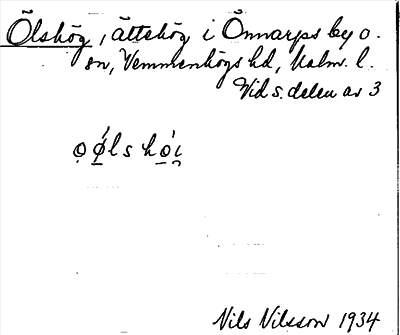 Ölshög, ättehög i Önnarps by o.
sn, Vemmenhögs hd, Malm. l.
Vid s. delen av 3
o ǿ l s h ó i̯
Nils Nilsson 1934